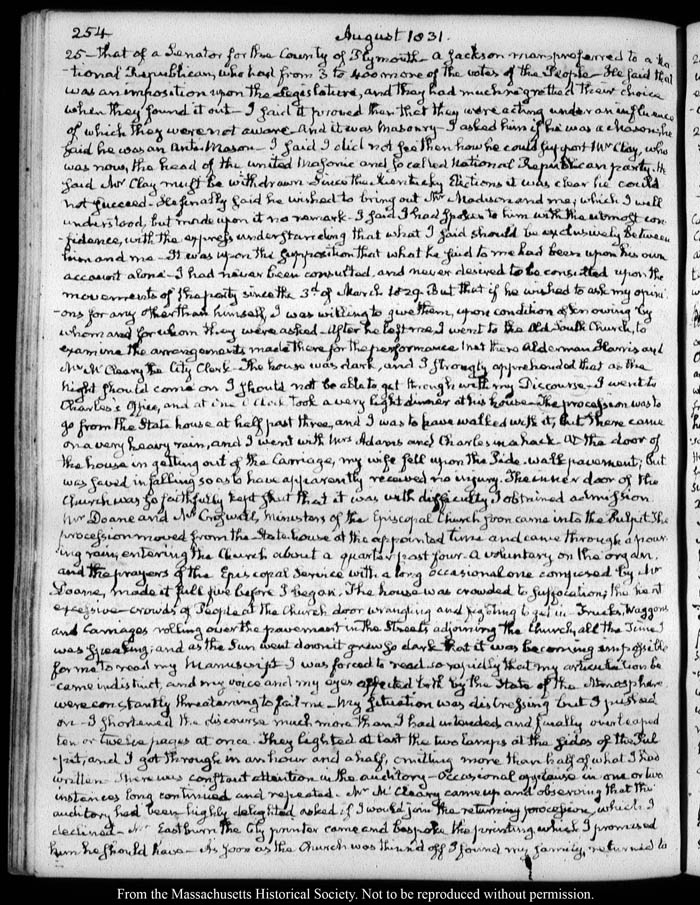 254
August 1831.
25 - that of a Senator for the County of Plymouth - a Jackson man preferred to a Na
-tional Republican, who had from 3 to 400 more of the votes of the People - He said that
was an imposition upon the Legislature, and they had much regretted their choice
when they found it out - I said it proved then that they were acting under an influence
of which they were not aware - And it was Masonry - I asked him if he was a Mason - he
said he was an Anti-Mason - I said I did not see then how he could support Mr Clay, who
was now, the head of the united Masonic and so called National Republican party. He
said Mr Clay must be withdrawn - Since the Kentucky Elections it was clear he could
not succeed - He finally said he wished to bring out Mr Madison and me; which I well
understood, but made upon it no remark - I said I had spoken to him with the utmost con
-fidence, with the express understanding that what I said should be exclusively between
him and me - It was upon the supposition that what he said to me had been upon his own
account alone - I had never been consulted, and never desired to be consulted upon the
movements of the party since the 3d of March 1829. But that if he wished to ask my opini
-ons for any other than himself, I was willing to give them, upon condition of knowing by
whom and for whom they were asked - After he left me I went to the Old South Church, to
examine the arrangements made there for the performance - Met there Alderman Harris and
Mr McCleary the City Clerk - The house was dark, and I strongly apprehended that as the
night should come on I should not be able to get through with my Discourse - I went to
Charles's Office, and at one O'Clock took a very light dinner at his house - The procession was to
go from the State house at half past three, and I was to have walked with it; but there came
on a very heavy rain, and I went with Mrs Adams and Charles in a hack. At the door of
the house in getting out of the Carriage, my wife fell upon the Side-walk pavement; but
was saved in falling so as to have apparently received no injury. The inner door of the
Church was so faithfully kept shut that it was with difficulty I obtained admission
Mr Doane and Mr Croswell, Ministers of the Episcopal Church soon came into the Pulpit. The
procession moved from the State house at the appointed time and came through a pour
-ing rain; entering the Church about a quarter past four. A voluntary on the organ,
and the prayers of the Episcopal Service with a long occasional one composed by Mr
Doane, made it full five before I began. The house was crowded to suffocation; the heat
excessive - crowds of People at the Church door wrangling and fighting to get in - Trucks, Waggons
and Carriages rolling over the pavement in the Streets adjoining the Church, all the time I
was speaking; and as the Sun went down it grew so dark that it was becoming impossible
for me to read my Manuscript - I was forced to read so rapidly that my articulation be
-came indistinct, and my voice and my eyes affected both by the State of the Atmosphere
were constantly threatening to fail me - My situation was distressing but I pushed
on - I shortened the discourse much more than I had intended and finally overleaped
ten or twelve pages at once. They lighted at last the two lamps at the sides of the Pul
-pit, and I got through in an hour and a half, omitting more than half of what I had
written. There was constant attention in the auditory - Occasional applause in one or two
instances long continued and repeated. Mr McCleary came up and observing that the
auditory had been highly delighted asked if I would join the returning procession, which I
declined - Mr Eastburn the City printer came and bespoke the printing which I promised
him he should have - As soon as the Church was thinn'd off I found my family, returned to
From the Massachusetts Historical Society. Not to be reproduced without permission.